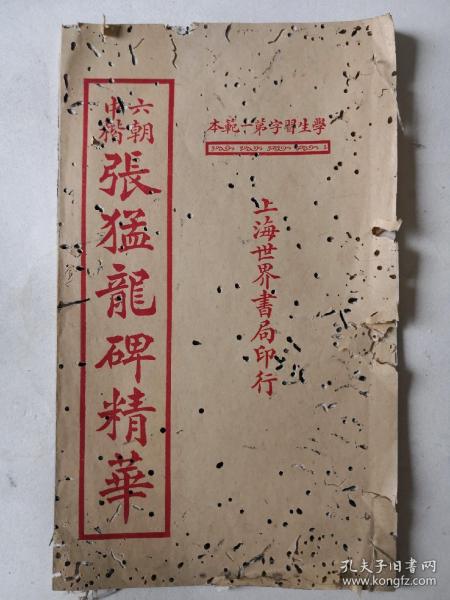 學生習字第一範本
上海世界書局印行
六朝
中楷
張猛龍碑精華
孔夫子旧书网
www.kongfz.com